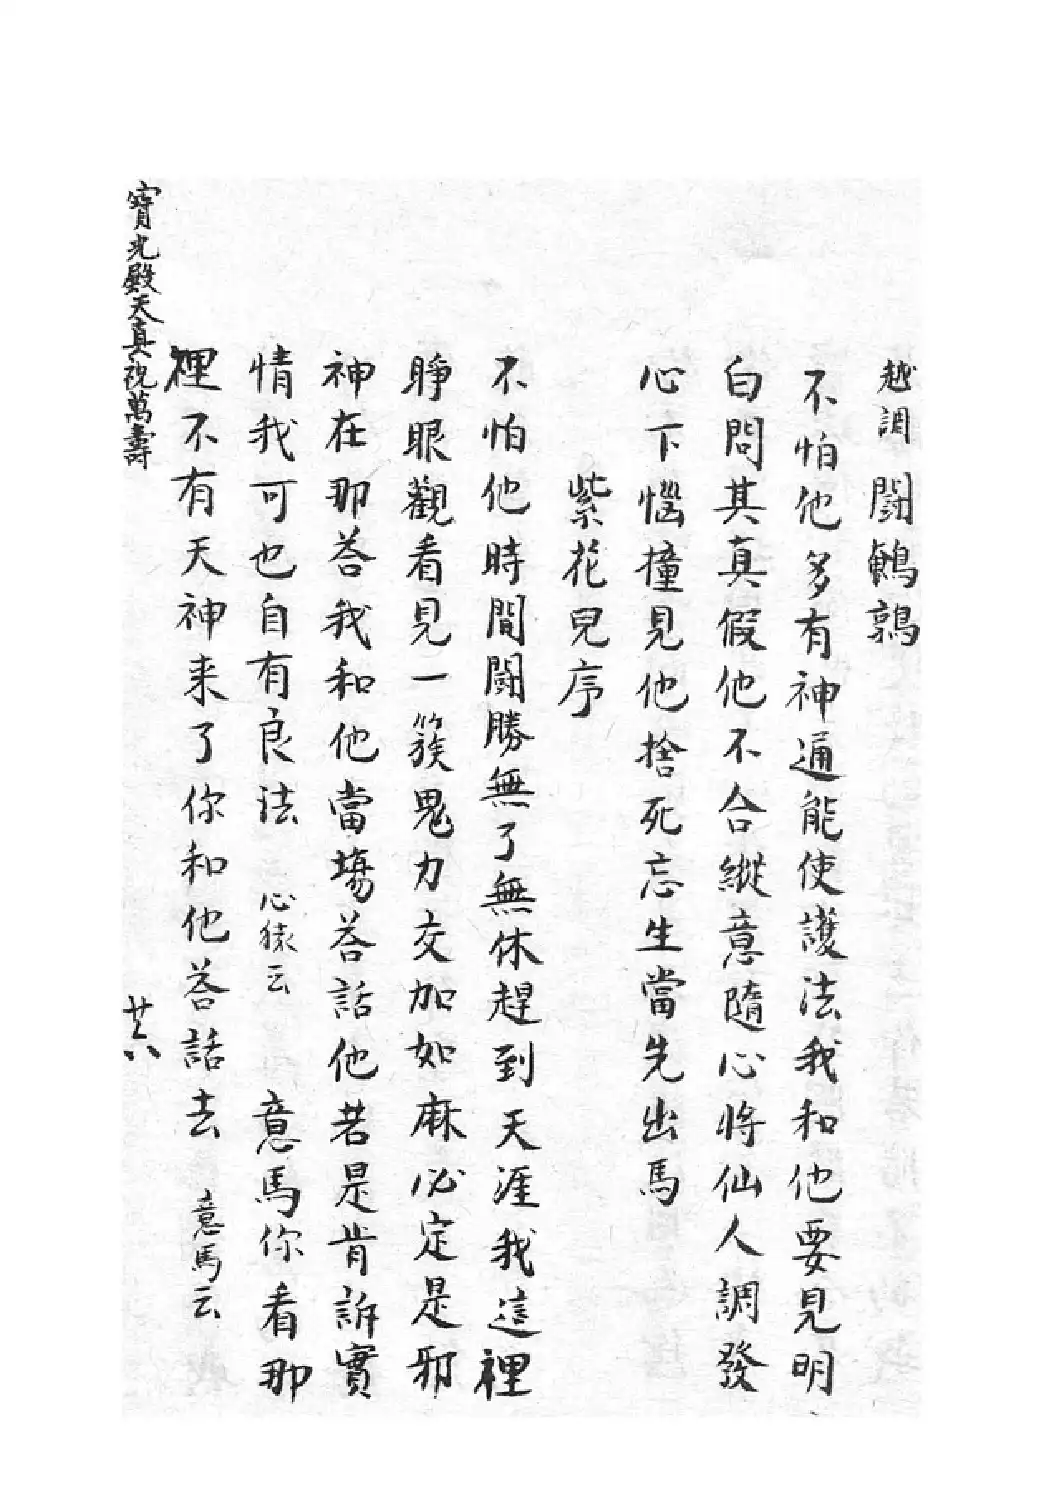 越調 鬪鵪鶉
不怕他多有神通能使護法我和他要見明
白問其真假他不合縱意隨心將仙人調發
心下惱撞見他捨死忘生當先出馬
紫花兒序
不怕他時間鬪勝無了無休趕到天涯我這裡
睜眼觀看見一簇鬼力交加如麻必定是邪
神在那荅我和他當場荅話他若是肯訴實
情我可也自有良法 心猿云 意馬你看那
裡不有天神来了你和他荅話去 意馬云
寳光殿天真祝萬壽 廿八